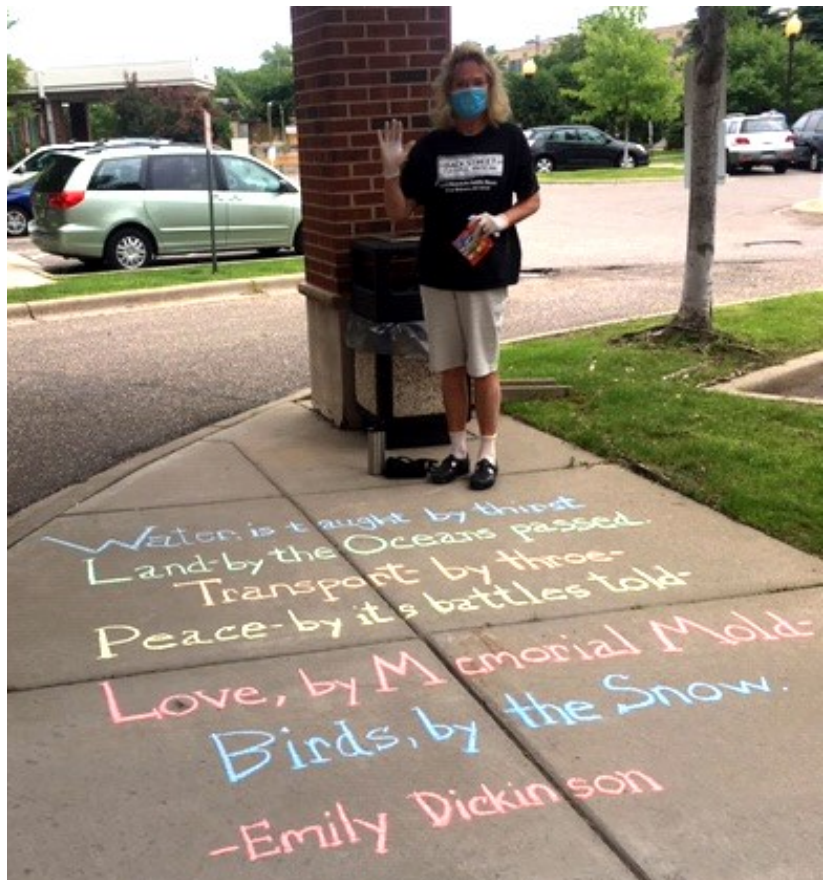 Water is taught by thirst
Land-by the Oceans passed.
Transport- by throe-
Peace-by it's battles told-
Love, by Memorial Mold-
Birds, by the Snow.
-Emily Dickinson